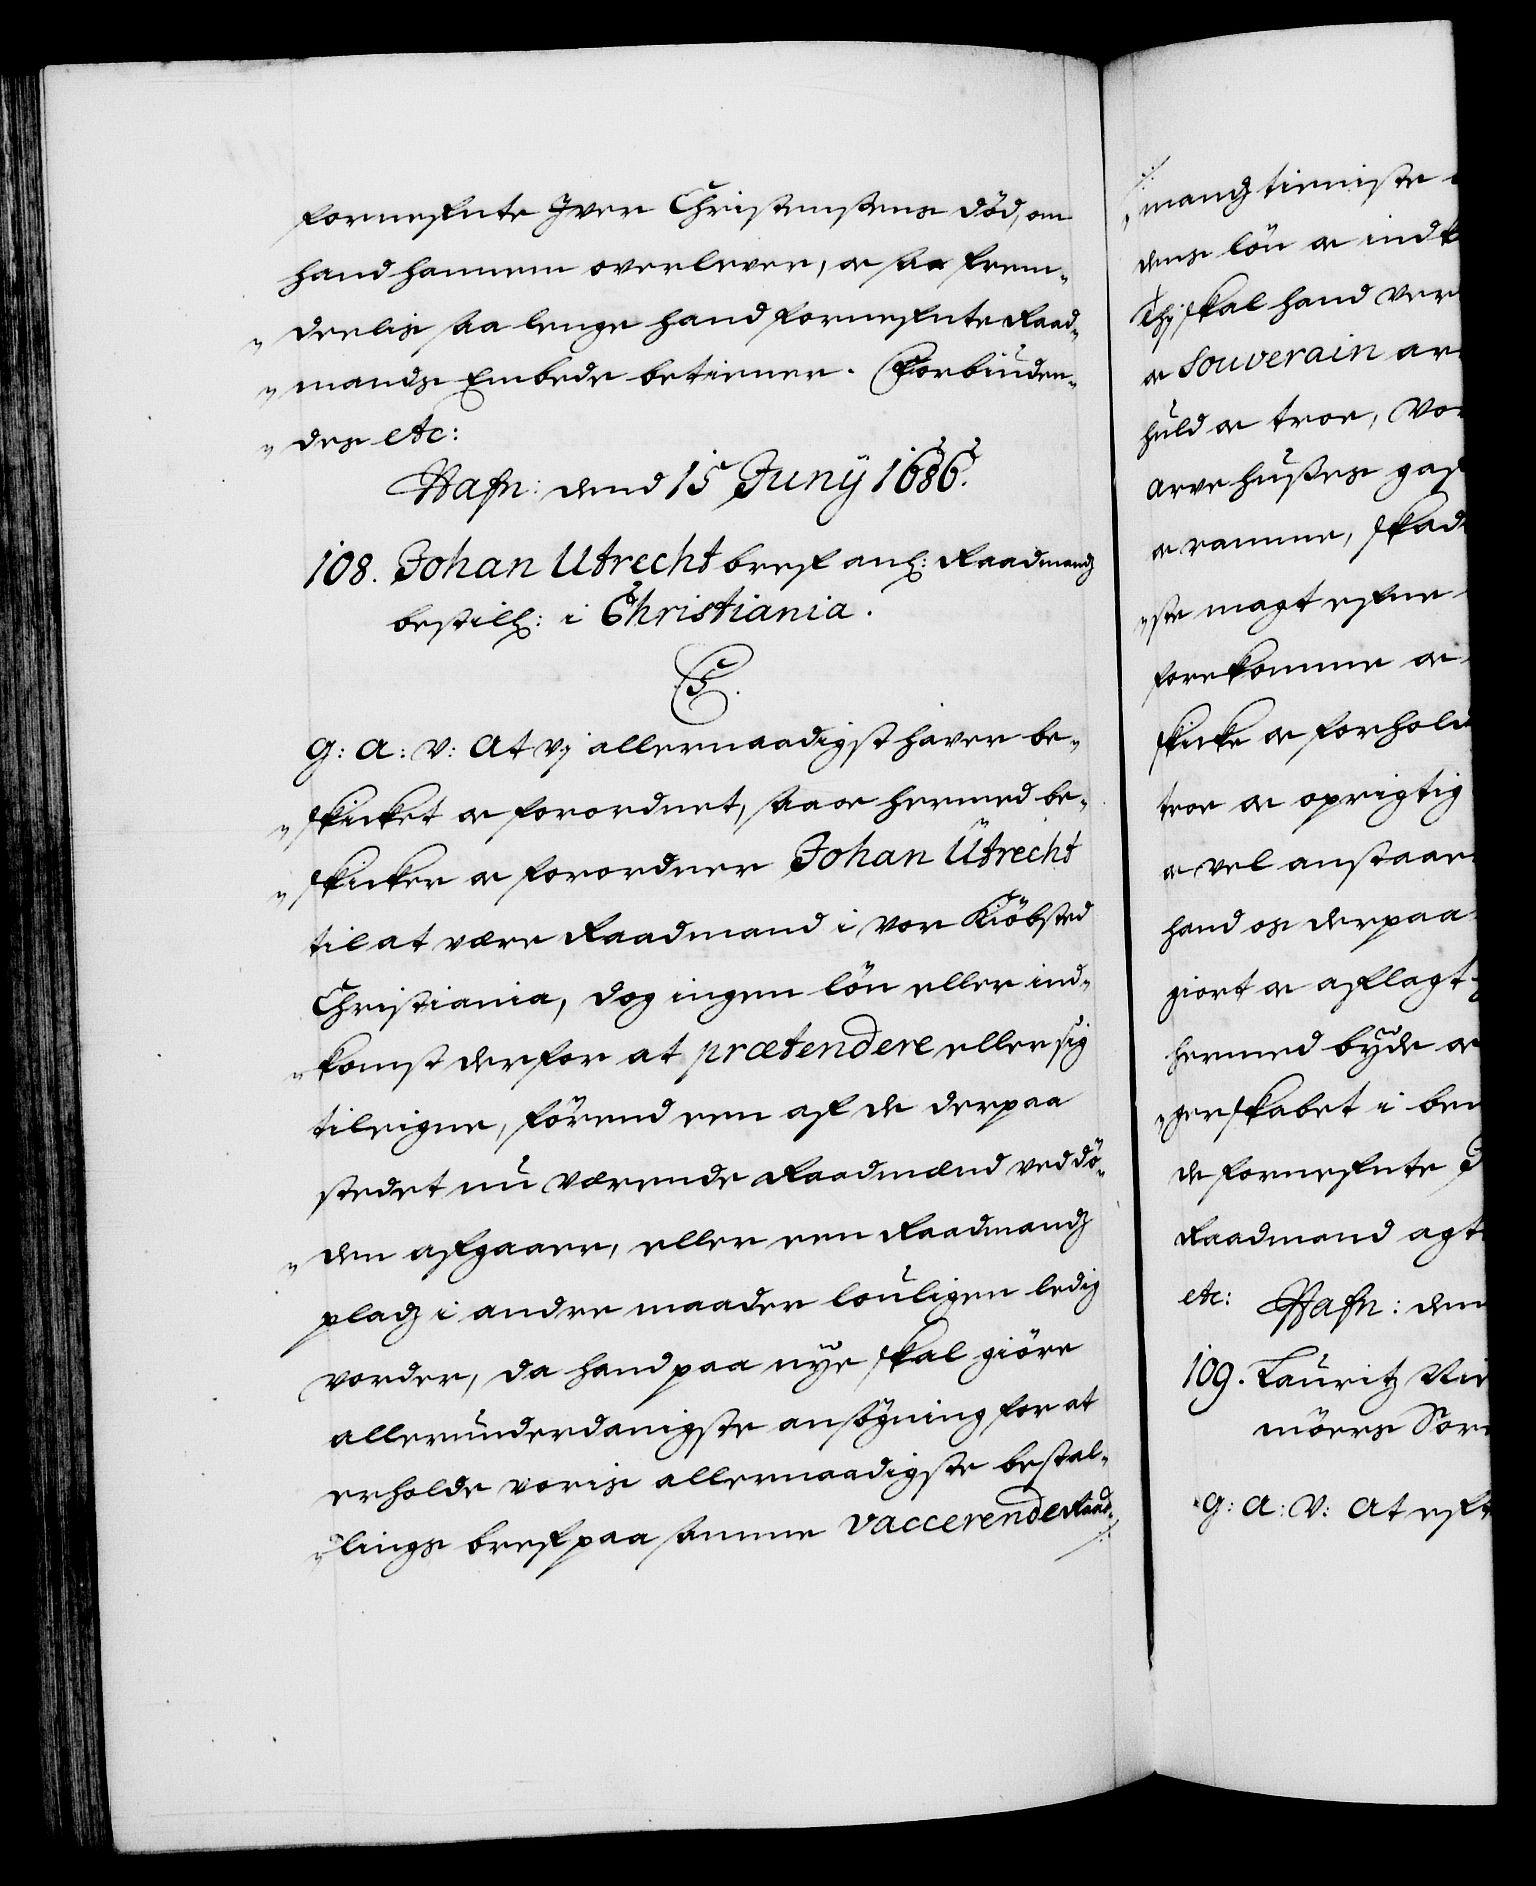 fornefnte Iver Christensens död, om
hand hannem overlever, oc saa frem-
"deelis saa lenge hand fornefnte Raad-
"mands Embede betiener. Forbiuden-
"des etc:
Hafn: dend 15 Junÿ 1686.
108. Johan Utrecht bref anl: Raadmandz
bestill: i Christiania.
C5.
G: A: V: At Vj allernaadigst haver be-
"skicket oc forordnet, saa oc hermed be-
"skicker oc forordner Johan Utrecht
til at være Raadmand i vor Kiöbsted
Christiania, dog ingen lön eller ind-
"komst derfor at prætendere eller sig
tileigne, förend een af de derpaa
stedet nu værende Raadmænd ved dö-
"den afgaaer, eller een Raadmandz
pladz i andre maader louligen ledig
vorder, da hand paa nye skal giöre
allerunderdanigste ansögning for at
erholde voris allernaadigste bestal-
"lings bref paa samme vaccerende Raad-
./.
./.
"mandz tieniste
dens lön oc indk
Thj skal hand Ver
oc Souverain ar
huld oc troe, Vor
arve huses gaf
oc ramme, skad
"ste magt efne
forekomme oc
skicke oc forhold
troe oc oprigtig
oc vel anstaar
hand os derpaa
giort oc aflagt
hermed bÿde oc
"gerskabet i ber
de fornefnte J
Raadmand agt
etc: Hafn: den
109. Lauritz Nie
möers Sor
G: A: V: At eft